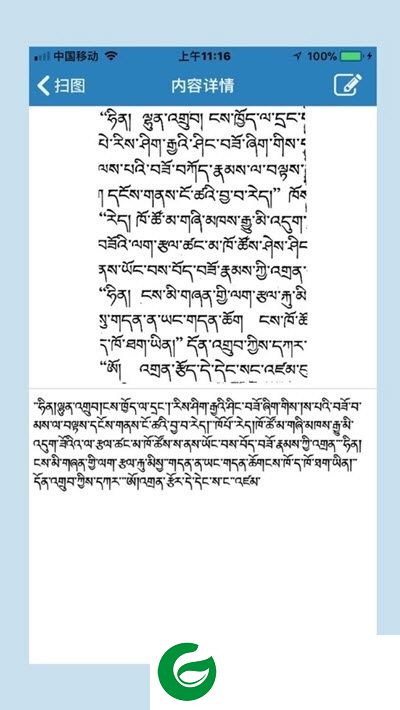 中国移动 上午11:16 100%
扫图 内容详情
“ཧིན། ལྷུན་འགྲུབ། ངས་ཁྱོད་ལ་དྲང་
པེ་རིས་ཤིག་རྒྱའི་ཤིང་བཟོ་ཞིག་གིས་
ལས་པའི་བཟོ་བཀོད་རྣམས་ལ་བལྟས་
། དངོས་གནས་ངོ་ཚའི་བྱ་བ་རེད།” ཁོས
“རེད། ཁོ་ཚོ་མ་གཞི་མཁས་རྒྱུ་མི་འདུག་
བཟོའི་ལག་རྩལ་ཚང་མ་ཁོ་ཚོས་ཤེས་ཤིང
ནས་ཡོང་བས་བོད་བཟོ་རྣམས་ཀྱི་འགྲན་
“ཧིན། ངས་མི་གཞན་གྱི་ལག་རྩལ་རྐུ་མི
སུ་གདན་ན་ཡང་གདན་ཆོག ངས་ཁོ་ཚོ
ད་ཁོ་ཐག་ཡིན།” དོན་འགྲུབ་ཀྱིས་དཀར་
“ཨོ། འགྲན་རྩོད་དེ་དེང་སང་འཛམ་
“ཧིན།ལྷུན་འགྲུབ།ངས་ཁྱོད་ལ་དྲང་།་རིས་ཤིག་རྒྱའི་ཤིང་བཟོ་ཞིག་གིས་།ས་པའི་བཟོ་བ་
མས་ལ་བལྟས་དངོས་གནས་ངོ་ཚའི་བྱ་བ་རེད།”ཁོཔོ་རེད།ཁོ་ཚོ་མ་གཞི་མཁས་རྒྱུ་མི་
འདུག་ཟོའིའི་ལ་རྩལ་ཚང་མ་ཁོ་ཚོས་ས་ནས་ཡོང་བས་བོད་བཟོ་རྣམས་ཀྱི་འགྲན་“ཧིན།
ངས་མི་གཞན་གྱི་ལག་རྩལ་རྐུ་མིསུ་གདན་ན་ཡང་གདན་ཆོགངས་ཁོ་ད་ཁོ་ཐག་ཡིན།”
དོན་འགྲུབ་ཀྱིས་དཀར་“ཨོ།འགྲན་རྩོར་དེ་དེང་ས་ང་འཛམ་